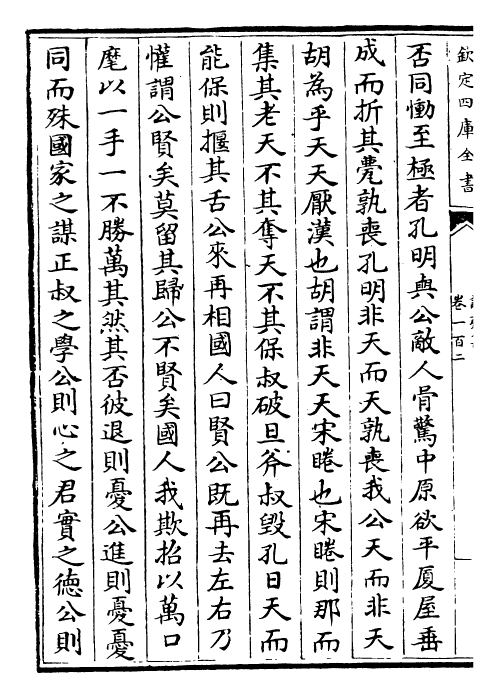 欽定四庫全書
卷一百二
否同慟至極者孔明與公敵人骨驚中原欲平厦屋垂
成而折其甍孰喪孔明非天而天孰喪我公天而非天
胡為乎天天厭漢也胡謂非天天宋睠也宋睠則那而
集其老天不其奪天不其保叔破旦斧叔毀孔日天而
能保則揠其舌公來再相國人曰賢公既再去左右乃
懽謂公賢矣莫留其歸公不賢矣國人我欺招以萬口
麾以一手一不勝萬其然其否彼退則憂公進則憂憂
同而殊國家之謀正叔之學公則心之君實之德公則